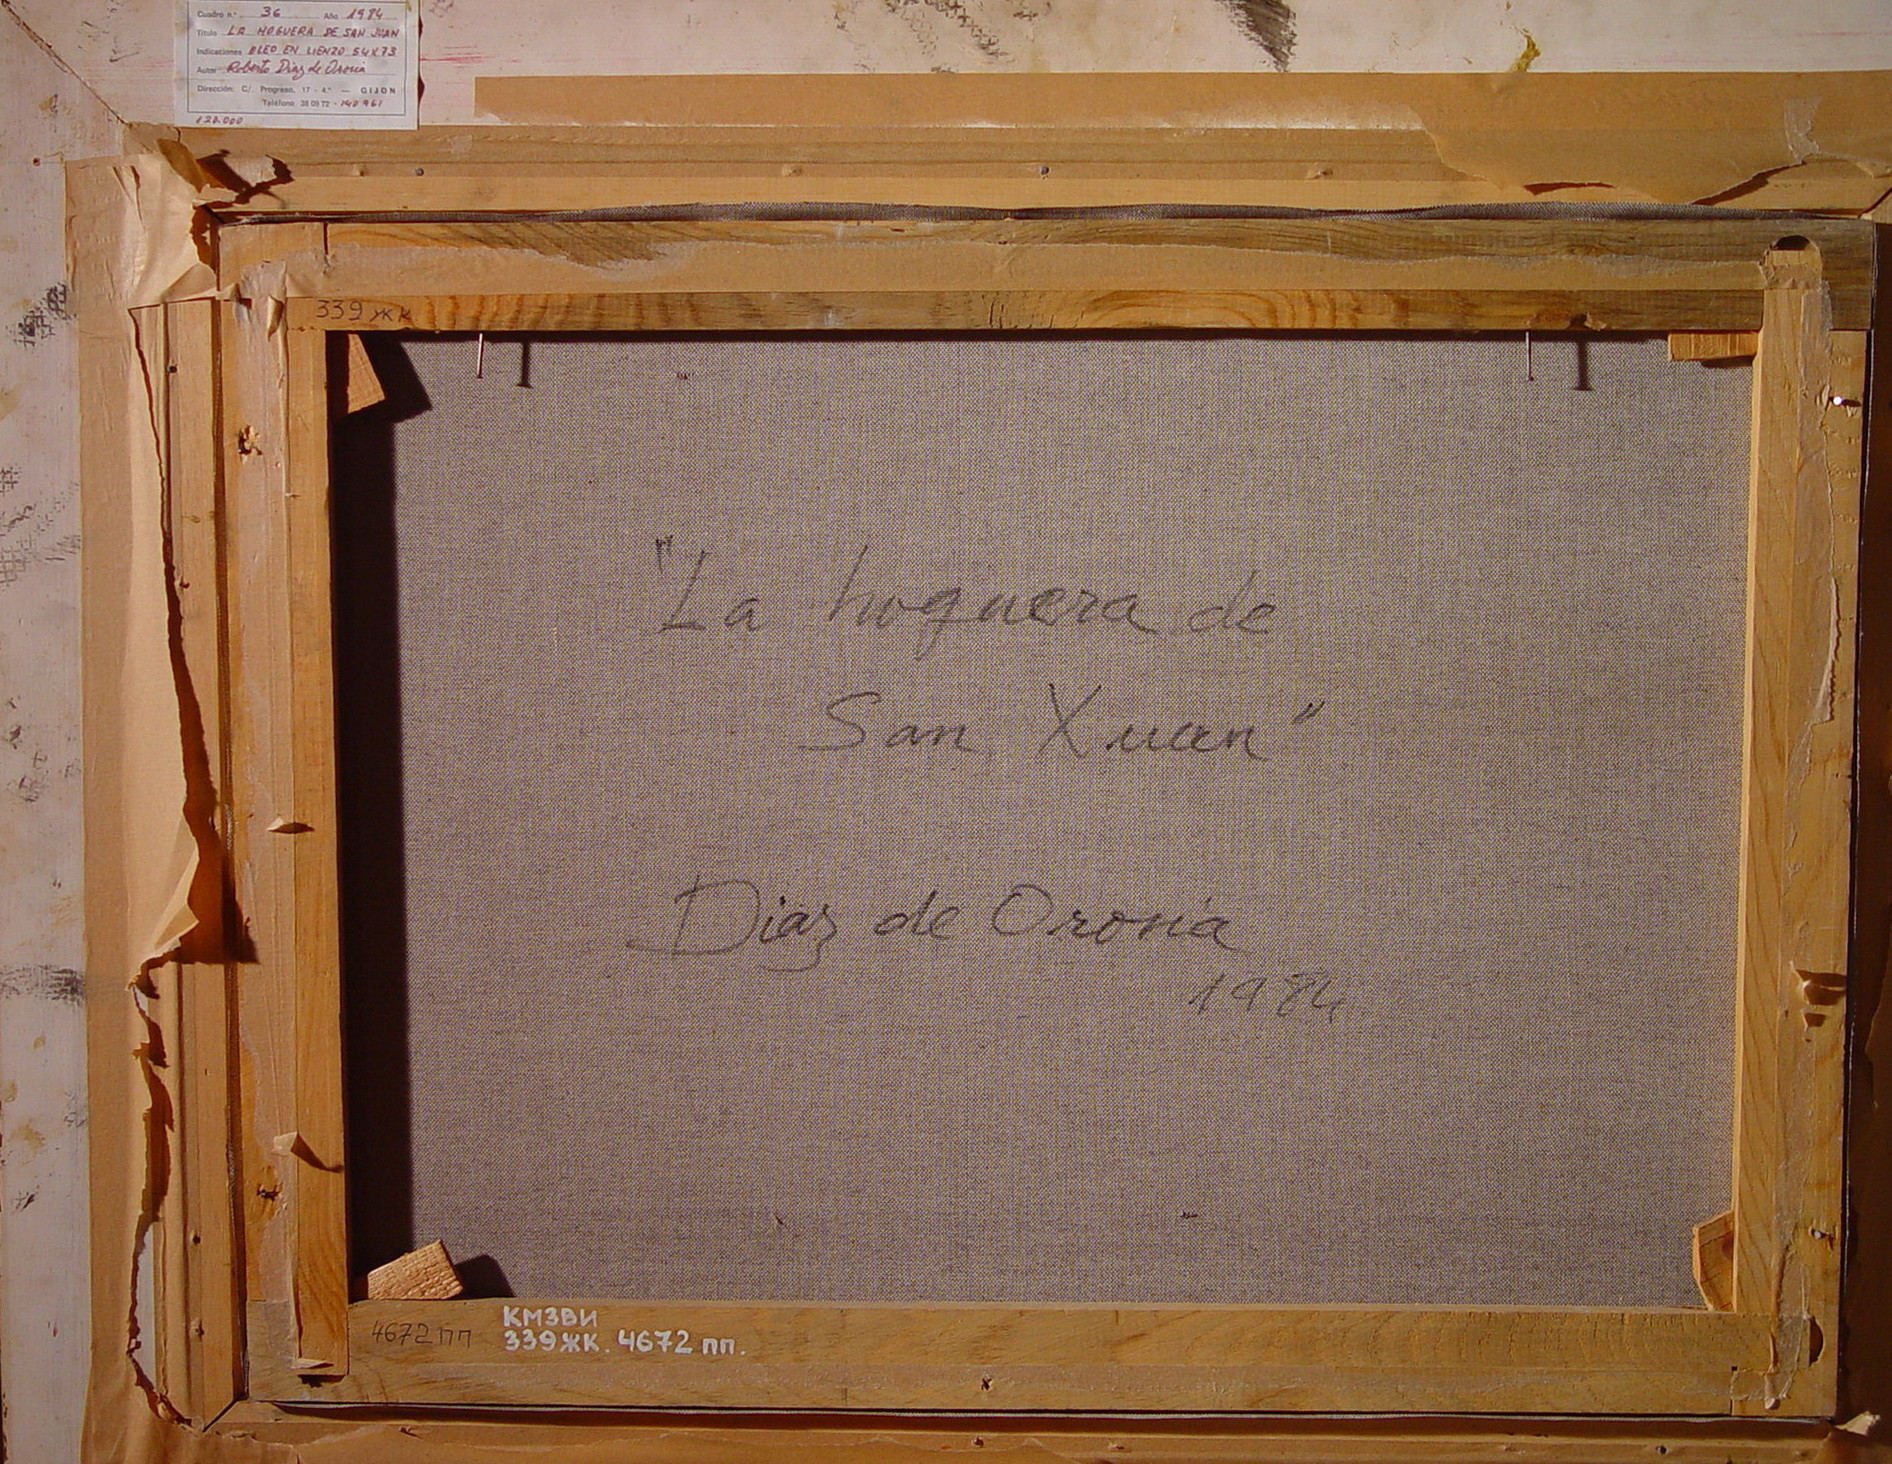 Cuadro n.° 36 Año 1984
Título LA HOGUERA DE SAN JUAN
Indicaciones OLEO EN LIENZO 54X73
Autor Roberto Diaz de Orosia
Dirección: C/. Progreso, 17 - 4.° — GIJON
Teléfono 38 09 72 - 140 961
120.000
339 жк
"La hoguera de
San Xuan"
Diaz de Orosia
1984
4672 пп
КМЗВИ
339 ЖК. 4672 пп.